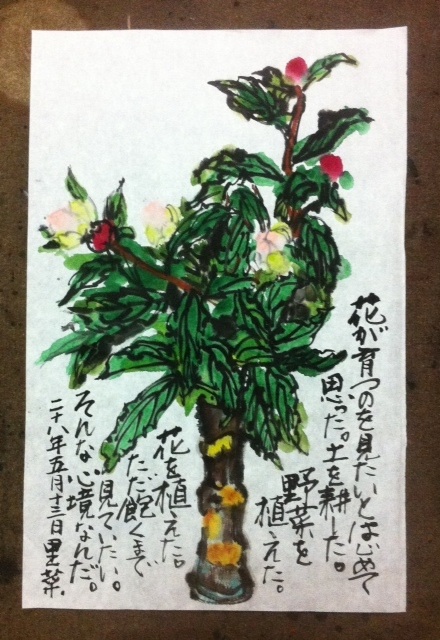 花が育つのを見たいとはじめて
思った。土を耕した。
野菜を
植えた。
花を植えた。
ただ飽くまで
見ていたい。
そんな心境なんだ。
二十八年五月十三日 里菜